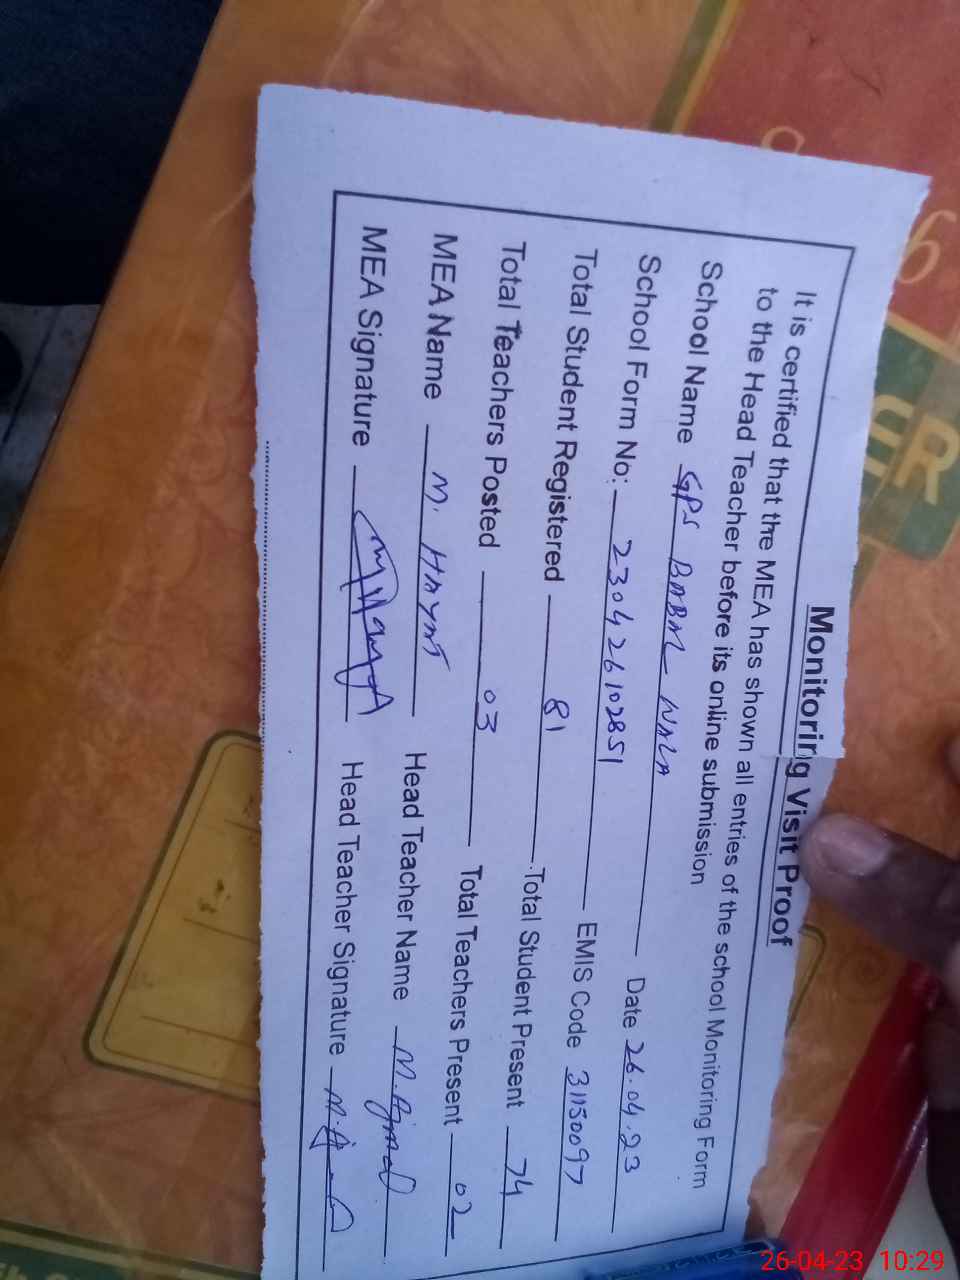 Monitoring Visit Proof
It is certified that the MEA has shown all entries of the school Monitoring Form
to the Head Teacher before its online submission
School Name GPS BABAL WALA Date 26.04.23
School Form No: 230426102851 EMIS Code 31150097
Total Student Registered 81 Total Student Present 74
Total Teachers Posted 03 Total Teachers Present 02
MEA Name M. HAYAT Head Teacher Name M. Ajmal
MEA Signature Head Teacher Signature
ER
6
26-04-23 10:29